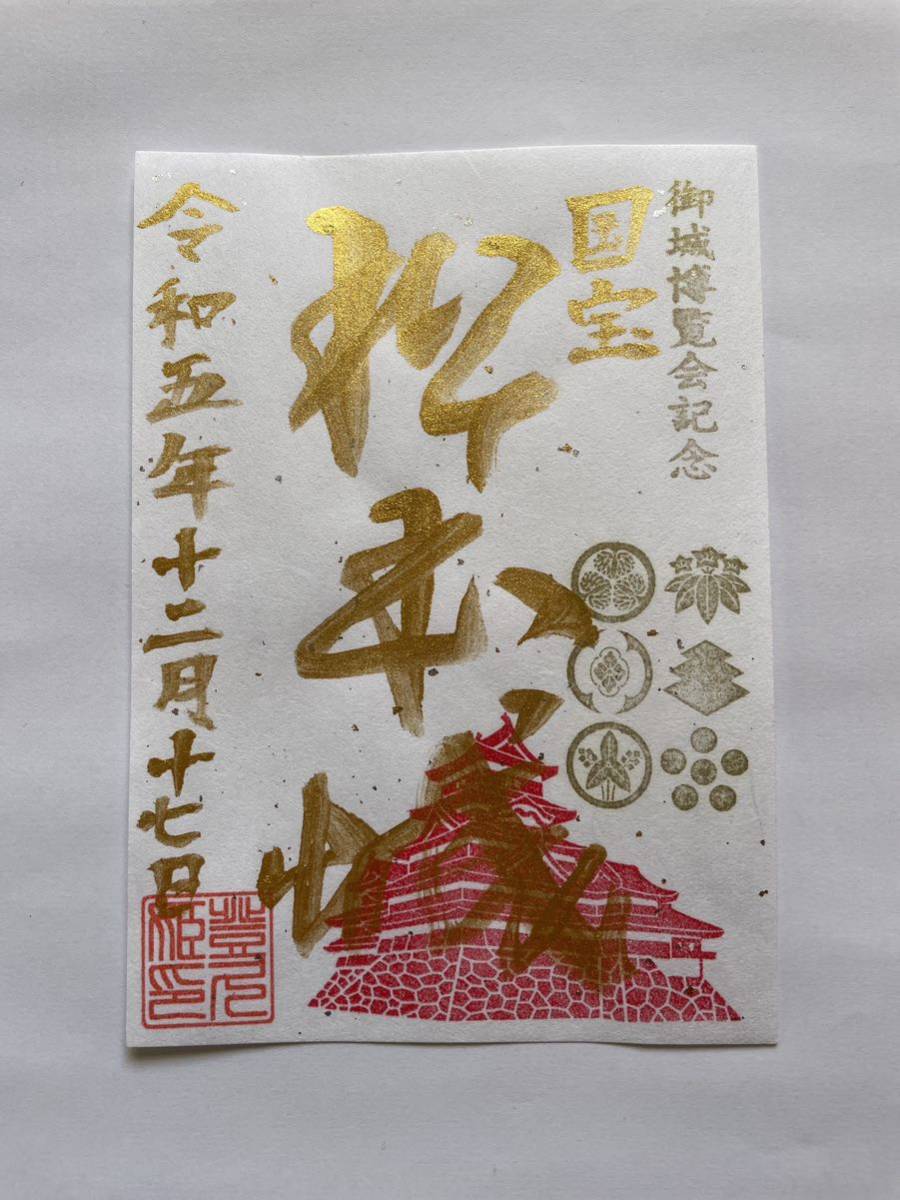 御城博覧会記念
国宝
松本城
令和五年十二月十七日